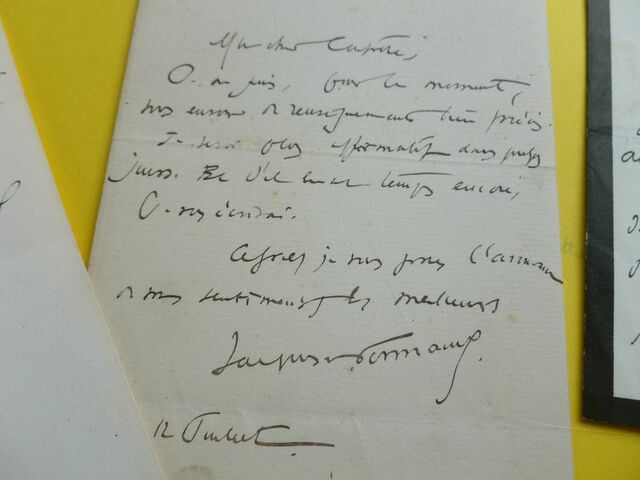 Mon cher Confrère,
Je ne puis, pour le moment,
vous envoyer de renseignements bien précis.
Je serai plus affirmatif dans quelques
jours. Et s'il en est temps encore,
je vous écrirai.
je vous prie l'assurance
de mes sentiments les meilleurs
Jacques Normand.
12 Juillet